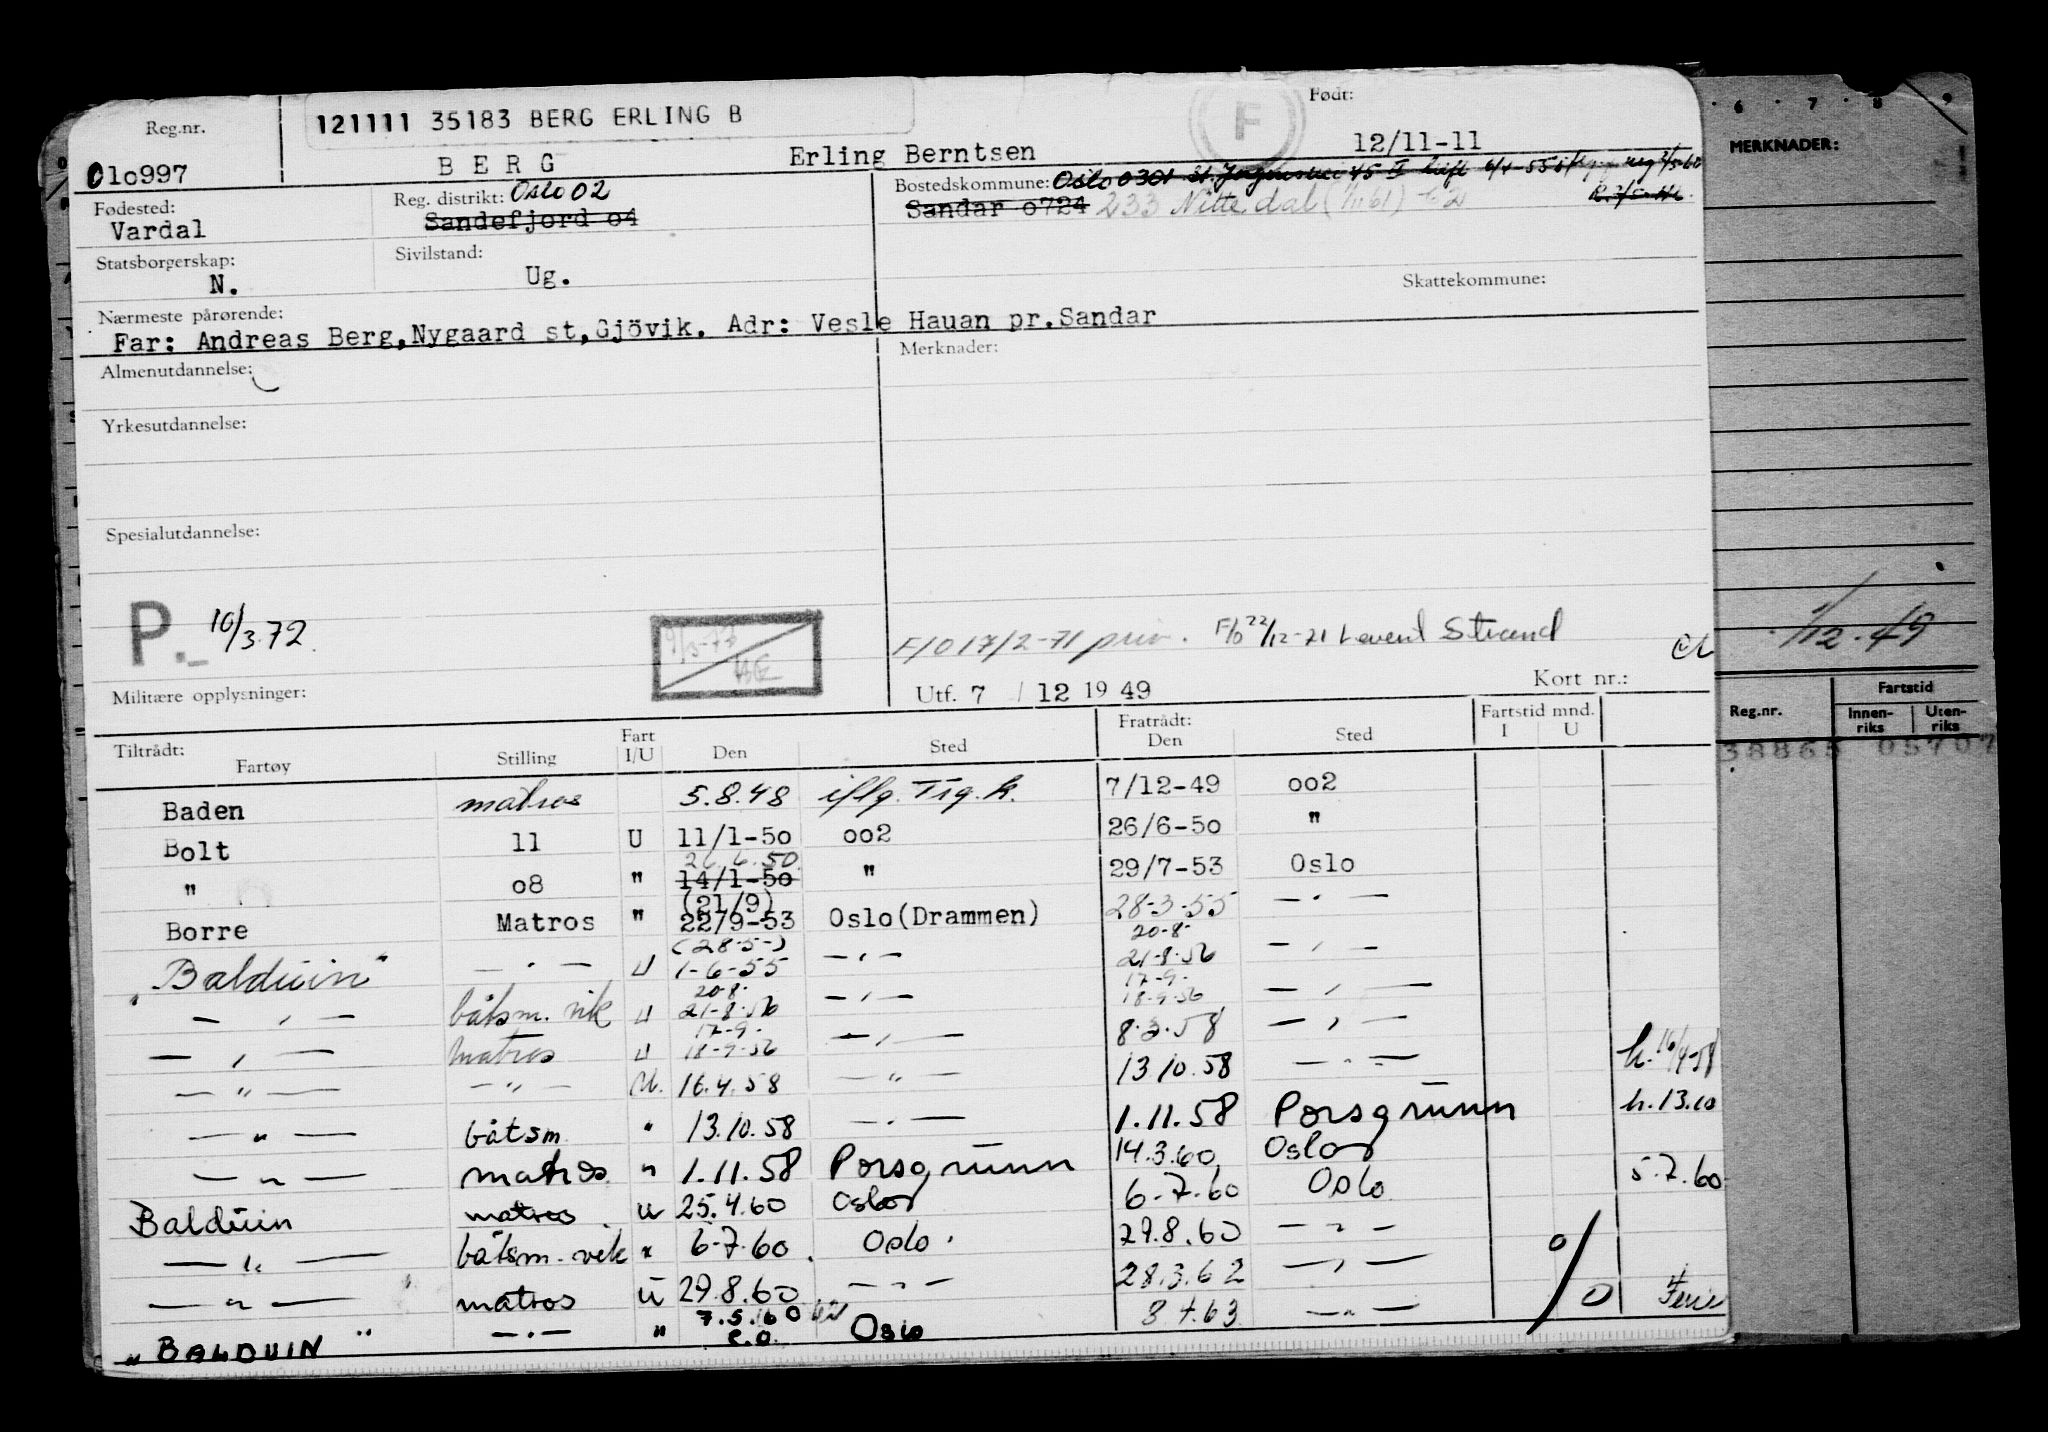 Reg.nr.
121111 35183 BERG ERLING B
F
Født:
0lo997
B E R G
Erling Berntsen
12/11-11
Fødested:
Vardal
Reg. distrikt: Oslo 02
Sandefjord o4
Bostedskommune: Oslo 0301
Sandar o724 233 Nittedal (1/1 61) 62
Statsborgerskap:
N.
Sivilstand:
Ug.
Skattekommune:
Nærmeste pårørende:
Far: Andreas Berg,Nygaard st,Gjövik. Adr: Vesle Hauan pr.Sandar
Almenutdannelse:
Merknader:
Yrkesutdannelse:
Spesialutdannelse:
P. 10/3.72.
F/O 17/2-71 priv. F/o 22/12-21 Strand
Militære opplysninger:
Utf. 7 / 12 19 49
Kort nr.:
Tiltrådt:
Fartøy
Stilling
Fart I/U
Den
Sted
Fratrådt:
Den
Sted
Fartstid mnd.
I U
Baden matros 5.8.48 iflg. Trg.k. 7/12-49 oo2
Bolt 11 U 11/1-50 oo2 26/6-50 "
26.6.50
" o8 " 14/1-50 " 29/7-53 Oslo
(21/9)
Borre Matros " 22/9-53 Oslo(Drammen) 28-3-55 — " —
(28-5-) 20-8-
"Balduin" — " — U 1-6-55 — " — 21-8-56 — " —
20-8- 17-9-
— " — båtsm. vik U 21-8-56 — " — 18-9-56 — " —
17-9-
— " — matros U 18-9-56 — " — 8.3.58 — " —
— " — — " — U. 16.4.58 — " — 13.10.58 — " — h. 16/4-58
— " — båtsm. " 13.10.58 — " — 1.11.58 Porsgrunn h. 13.10
— " — matros " 1.11.58 Porsgrunn 14.3.60 Oslo
Balduin matros u 25.4.60 Oslo 6-7-60 Oslo 5.7.60
— " — båtsm. vik " 6-7-60 Oslo 29.8.60 — " —
— " — matros u 29.8.60 — " — 28.3.62 — " — Ferie
7.5.60 62
"BALDUIN" — " — " e.o. Oslo 8.4.63 — " —
6 7 8 9
MERKNADER:
1/12-49
Reg.nr.
Fartstid
Innen-riks
Uten-riks
38865 05707